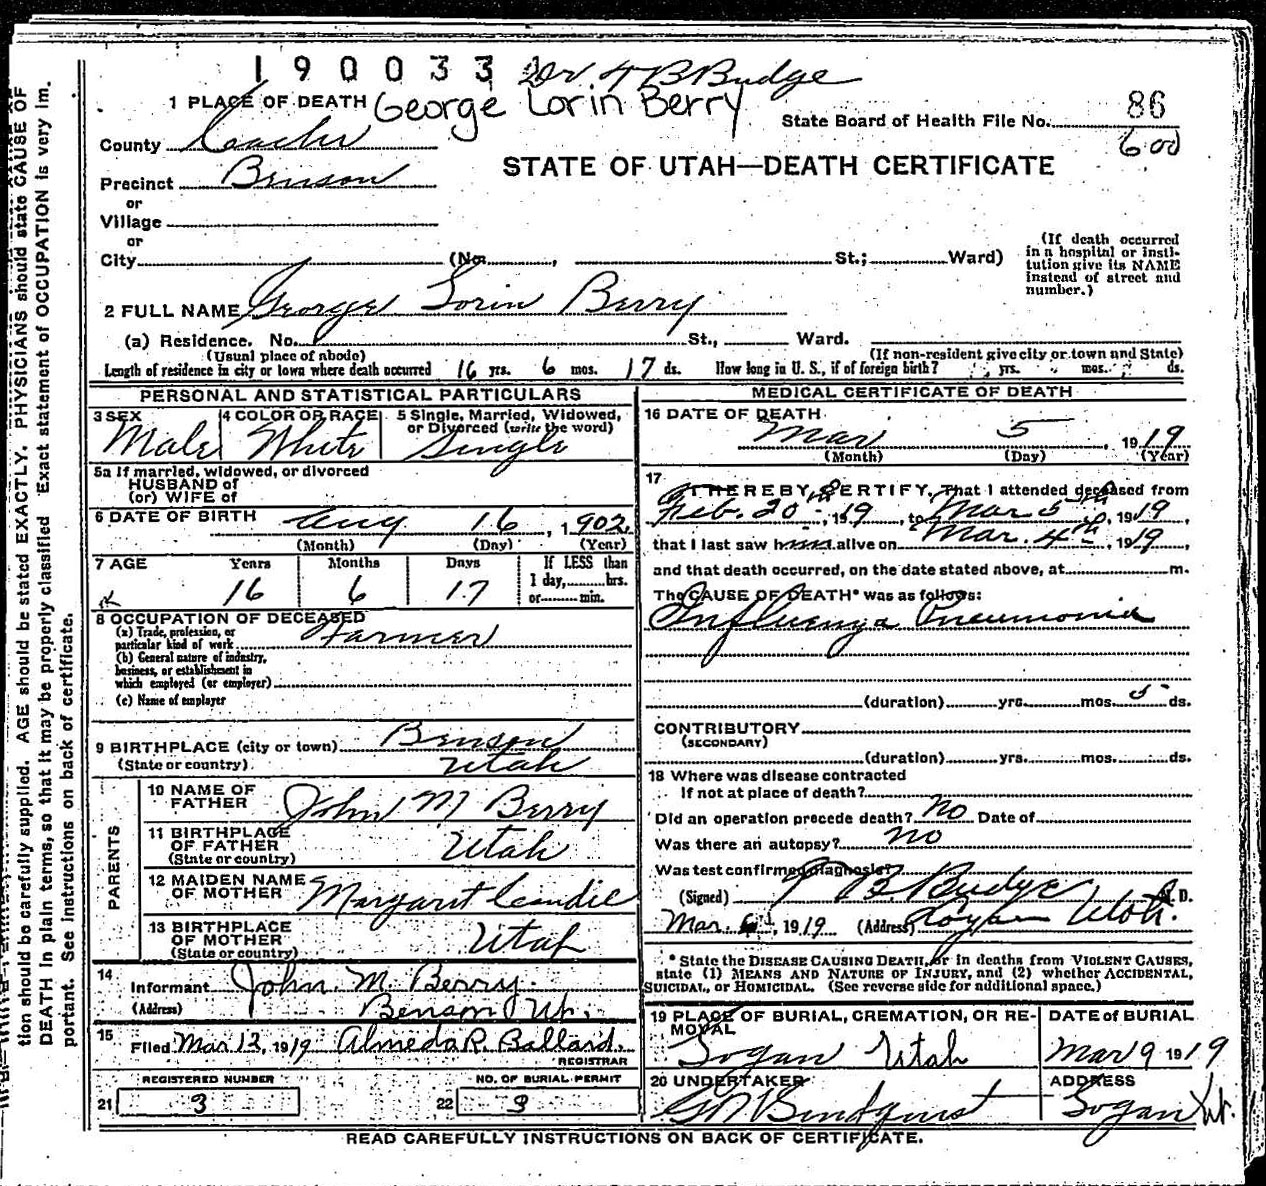 1900331 Dr T B Budge
1 PLACE OF DEATH George Lorin Berry
State Board of Health File No. 86
600
County Cache
STATE OF UTAH—DEATH CERTIFICATE
Precinct Benson
or
Village
or
City (No. , St.; Ward)
(If death occurred in a hospital or insti-
tution give its NAME
instead of street and
number.)
2 FULL NAME George Lorin Berry
(a) Residence. No. St., Ward.
(Usual place of abode) (If non-resident give city or town and State)
Length of residence in city or town where death occurred 16 yrs. 6 mos. 17 ds. How long in U. S., if of foreign birth? yrs. mos. ds.
PERSONAL AND STATISTICAL PARTICULARS
3 SEX 4 COLOR OR RACE 5 Single, Married, Widowed,
or Divorced (write the word)
Male White Single
5a If married, widowed, or divorced
HUSBAND of
(or) WIFE of
6 DATE OF BIRTH Aug 16, 1902.
(Month) (Day) (Year)
7 AGE Years Months Days If LESS than
1 day, hrs.
or min.
16 6 17
8 OCCUPATION OF DECEASED
(a) Trade, profession, or
particular kind of work Farmer
(b) General nature of industry,
business, or establishment in
which employed (or employer)
(c) Name of employer
9 BIRTHPLACE (city or town) Benson
(State or country) Utah
PARENTS
10 NAME OF
FATHER John M Berry
11 BIRTHPLACE
OF FATHER
(State or country) Utah
12 MAIDEN NAME
OF MOTHER Margaret
13 BIRTHPLACE
OF MOTHER
(State or country) Utah
14
Informant John M. Berry.
(Address) Benson Ut.
15
Filed Mar 13, 1919 Almeda R. Ballard.
REGISTRAR
REGISTERED NUMBER NO. OF BURIAL PERMIT
21 3 22 3
MEDICAL CERTIFICATE OF DEATH
16 DATE OF DEATH
Mar 5, 1919
(Month) (Day) (Year)
17
I HEREBY CERTIFY, That I attended deceased from
Feb. 20th, 1919, to Mar 5th, 1919,
that I last saw him alive on Mar. 4th, 1919,
and that death occurred, on the date stated above, at m.
The CAUSE OF DEATH* was as follows:
Influenza Pneumonia
(duration) yrs. mos. 5 ds.
CONTRIBUTORY
(SECONDARY)
(duration) yrs. mos. ds.
18 Where was disease contracted
If not at place of death?
Did an operation precede death? no Date of
Was there an autopsy? no
Was test confirmed diagnosis?
(Signed) T B Budge M. D.
Mar. 6th, 1919 (Address) Logan Utah.
* State the DISEASE CAUSING DEATH, or in deaths from VIOLENT CAUSES,
state (1) MEANS AND NATURE OF INJURY, and (2) whether ACCIDENTAL,
SUICIDAL, or HOMICIDAL. (See reverse side for additional space.)
19 PLACE OF BURIAL, CREMATION, OR RE-
MOVAL
DATE of BURIAL
Logan Utah Mar 9 1919
20 UNDERTAKER ADDRESS
Logan Ut.
READ CAREFULLY INSTRUCTIONS ON BACK OF CERTIFICATE.
tion should be carefully supplied. AGE should be stated EXACTLY. PHYSICIANS should state CAUSE OF
DEATH in plain terms, so that it may be properly classified Exact statement of OCCUPATION is very im.
portant. See instructions on back of certificate.